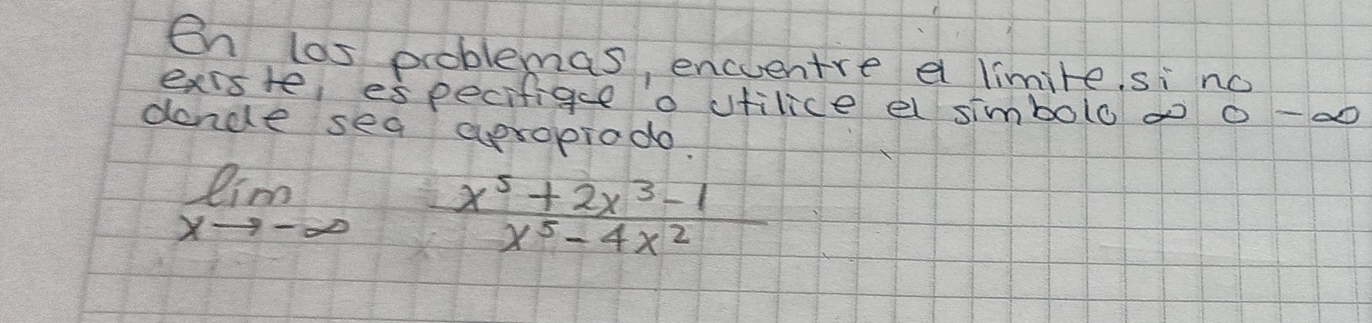 En los problemas, encuentre el limite, si no
existe, especifique o utilice el simbolo ∞ o -∞
donde sea apropiado.
lim x→-∞ (x⁵ + 2x³ - 1) / (x⁵ - 4x²)